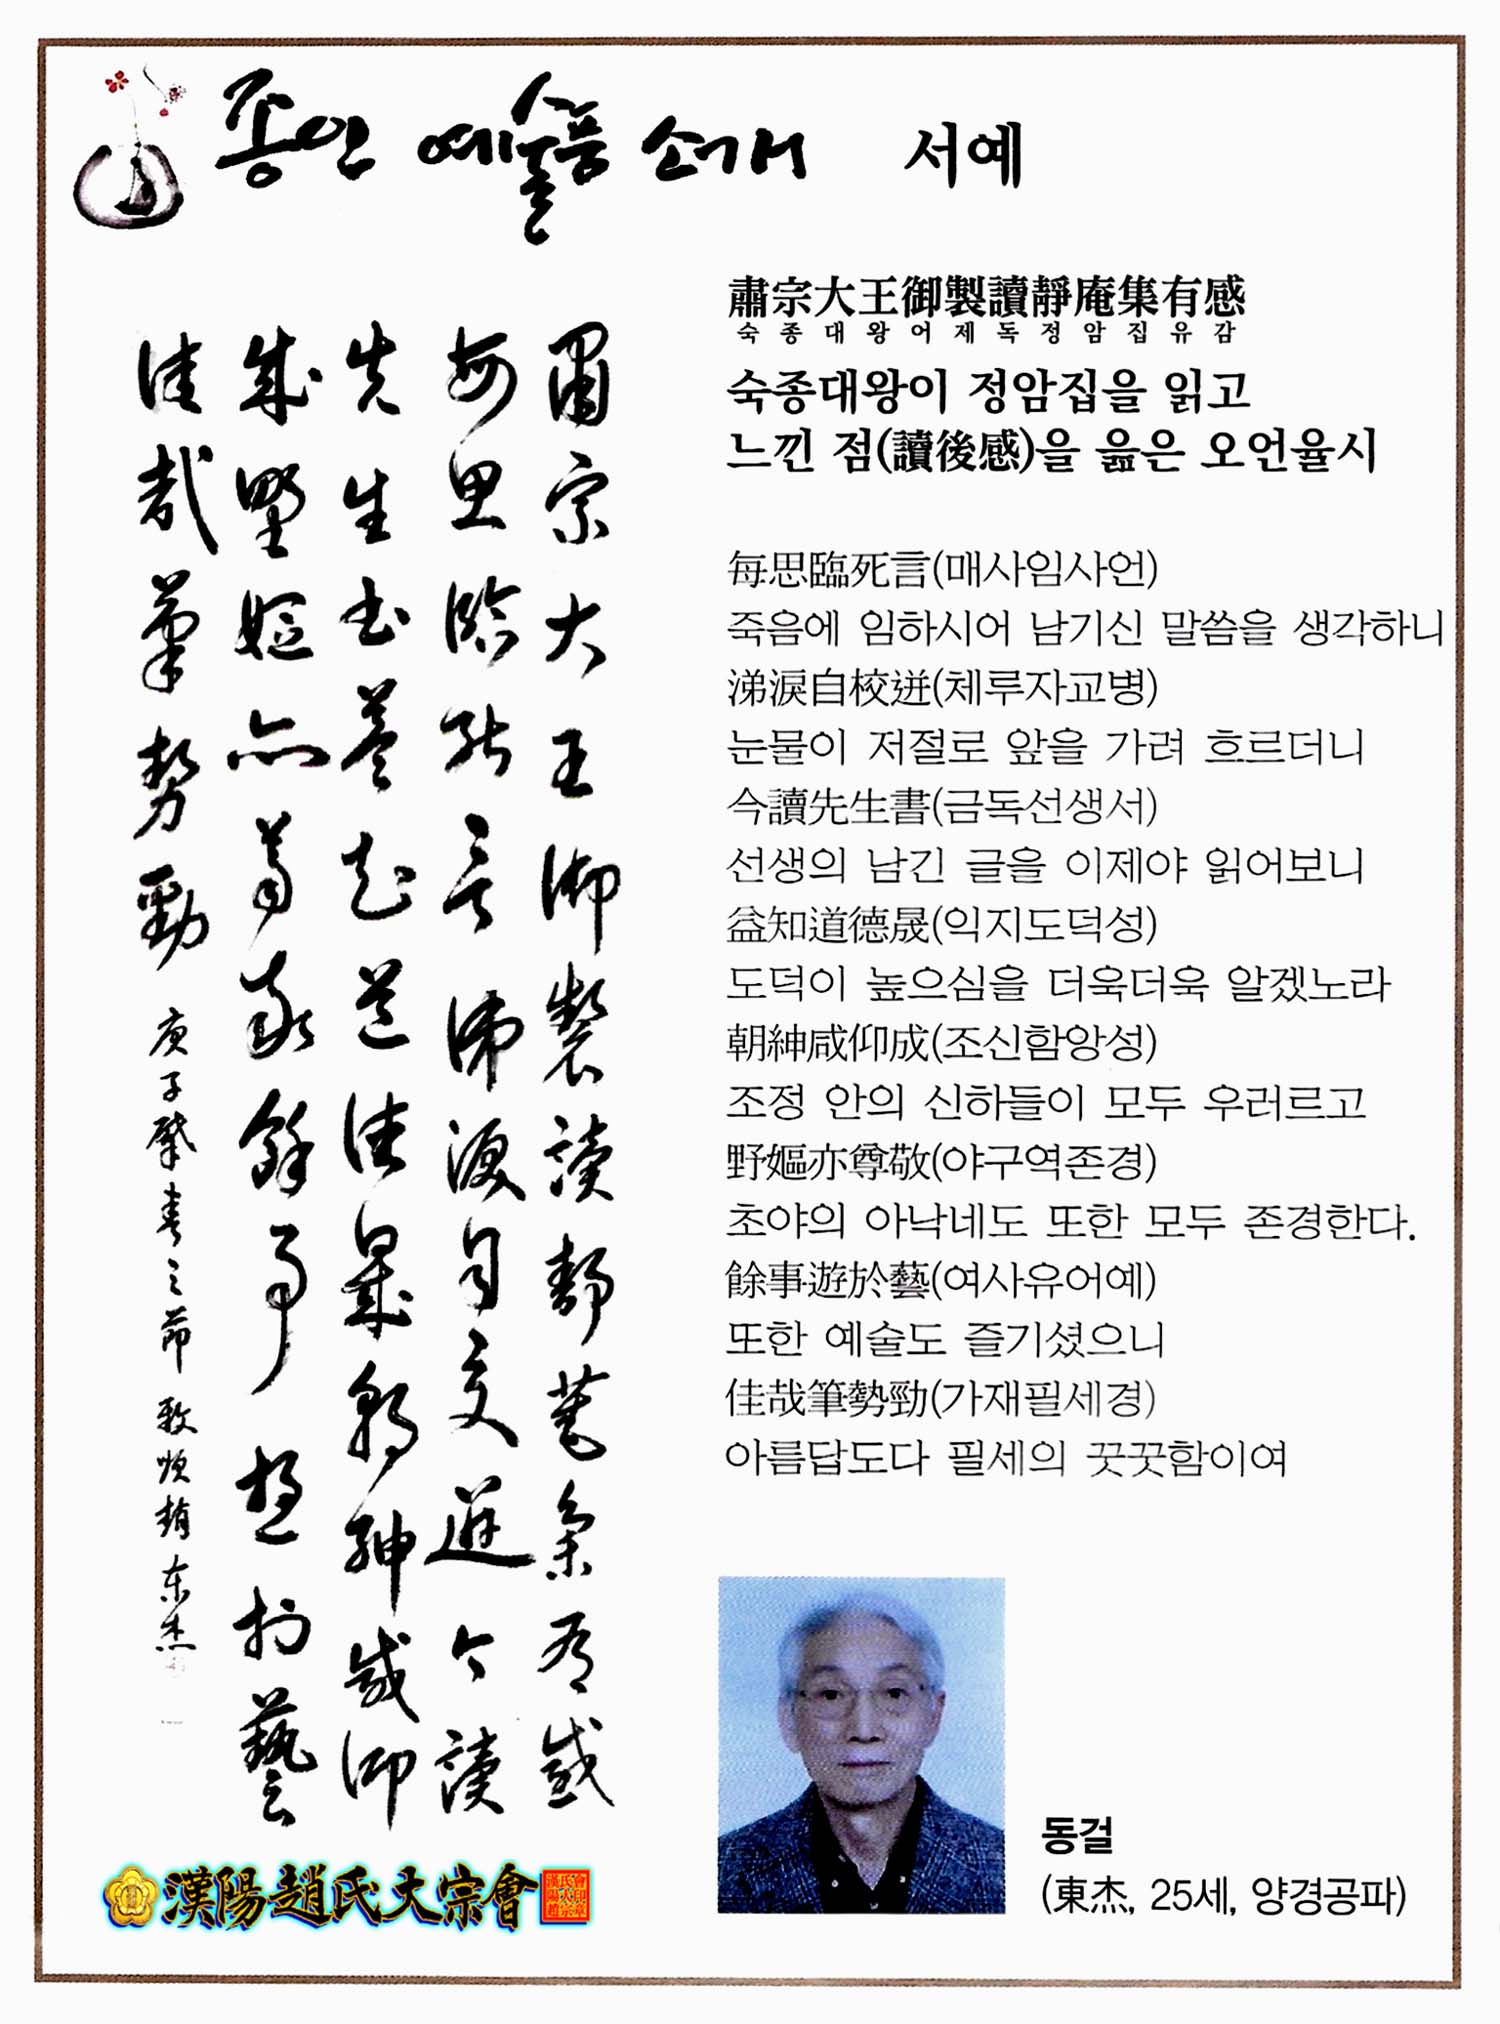 종인 예술품 소개 서예
肅宗大王御製讀靜庵集有感
숙종대왕어제독정암집유감
숙종대왕이 정암집을 읽고
느낀 점(讀後感)을 읊은 오언율시
每思臨死言(매사임사언)
죽음에 임하시어 남기신 말씀을 생각하니
涕淚自校迸(체루자교병)
눈물이 저절로 앞을 가려 흐르더니
今讀先生書(금독선생서)
선생의 남긴 글을 이제야 읽어보니
益知道德晟(익지도덕성)
도덕이 높으심을 더욱더욱 알겠노라
朝紳咸仰成(조신함앙성)
조정 안의 신하들이 모두 우러르고
野嫗亦尊敬(야구역존경)
초야의 아낙네도 또한 모두 존경한다.
餘事遊於藝(여사유어예)
또한 예술도 즐기셨으니
佳哉筆勢勁(가재필세경)
아름답도다 필세의 꿋꿋함이여
肅宗大王御製讀靜菴集有感
每思臨死言涕淚自交迸今讀
先生書益知道德晟朝紳咸仰
成野嫗亦尊敬餘事遊於藝
佳哉筆勢勁 庚子肇春之節 敬順 趙東杰
동걸
(東杰, 25세, 양경공파)
漢陽趙氏大宗會